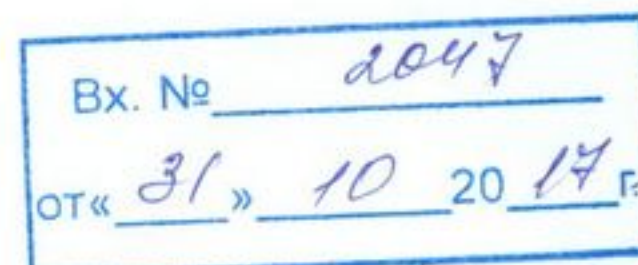 Вх. № 2047
от« 31 » 10 20 17 г.